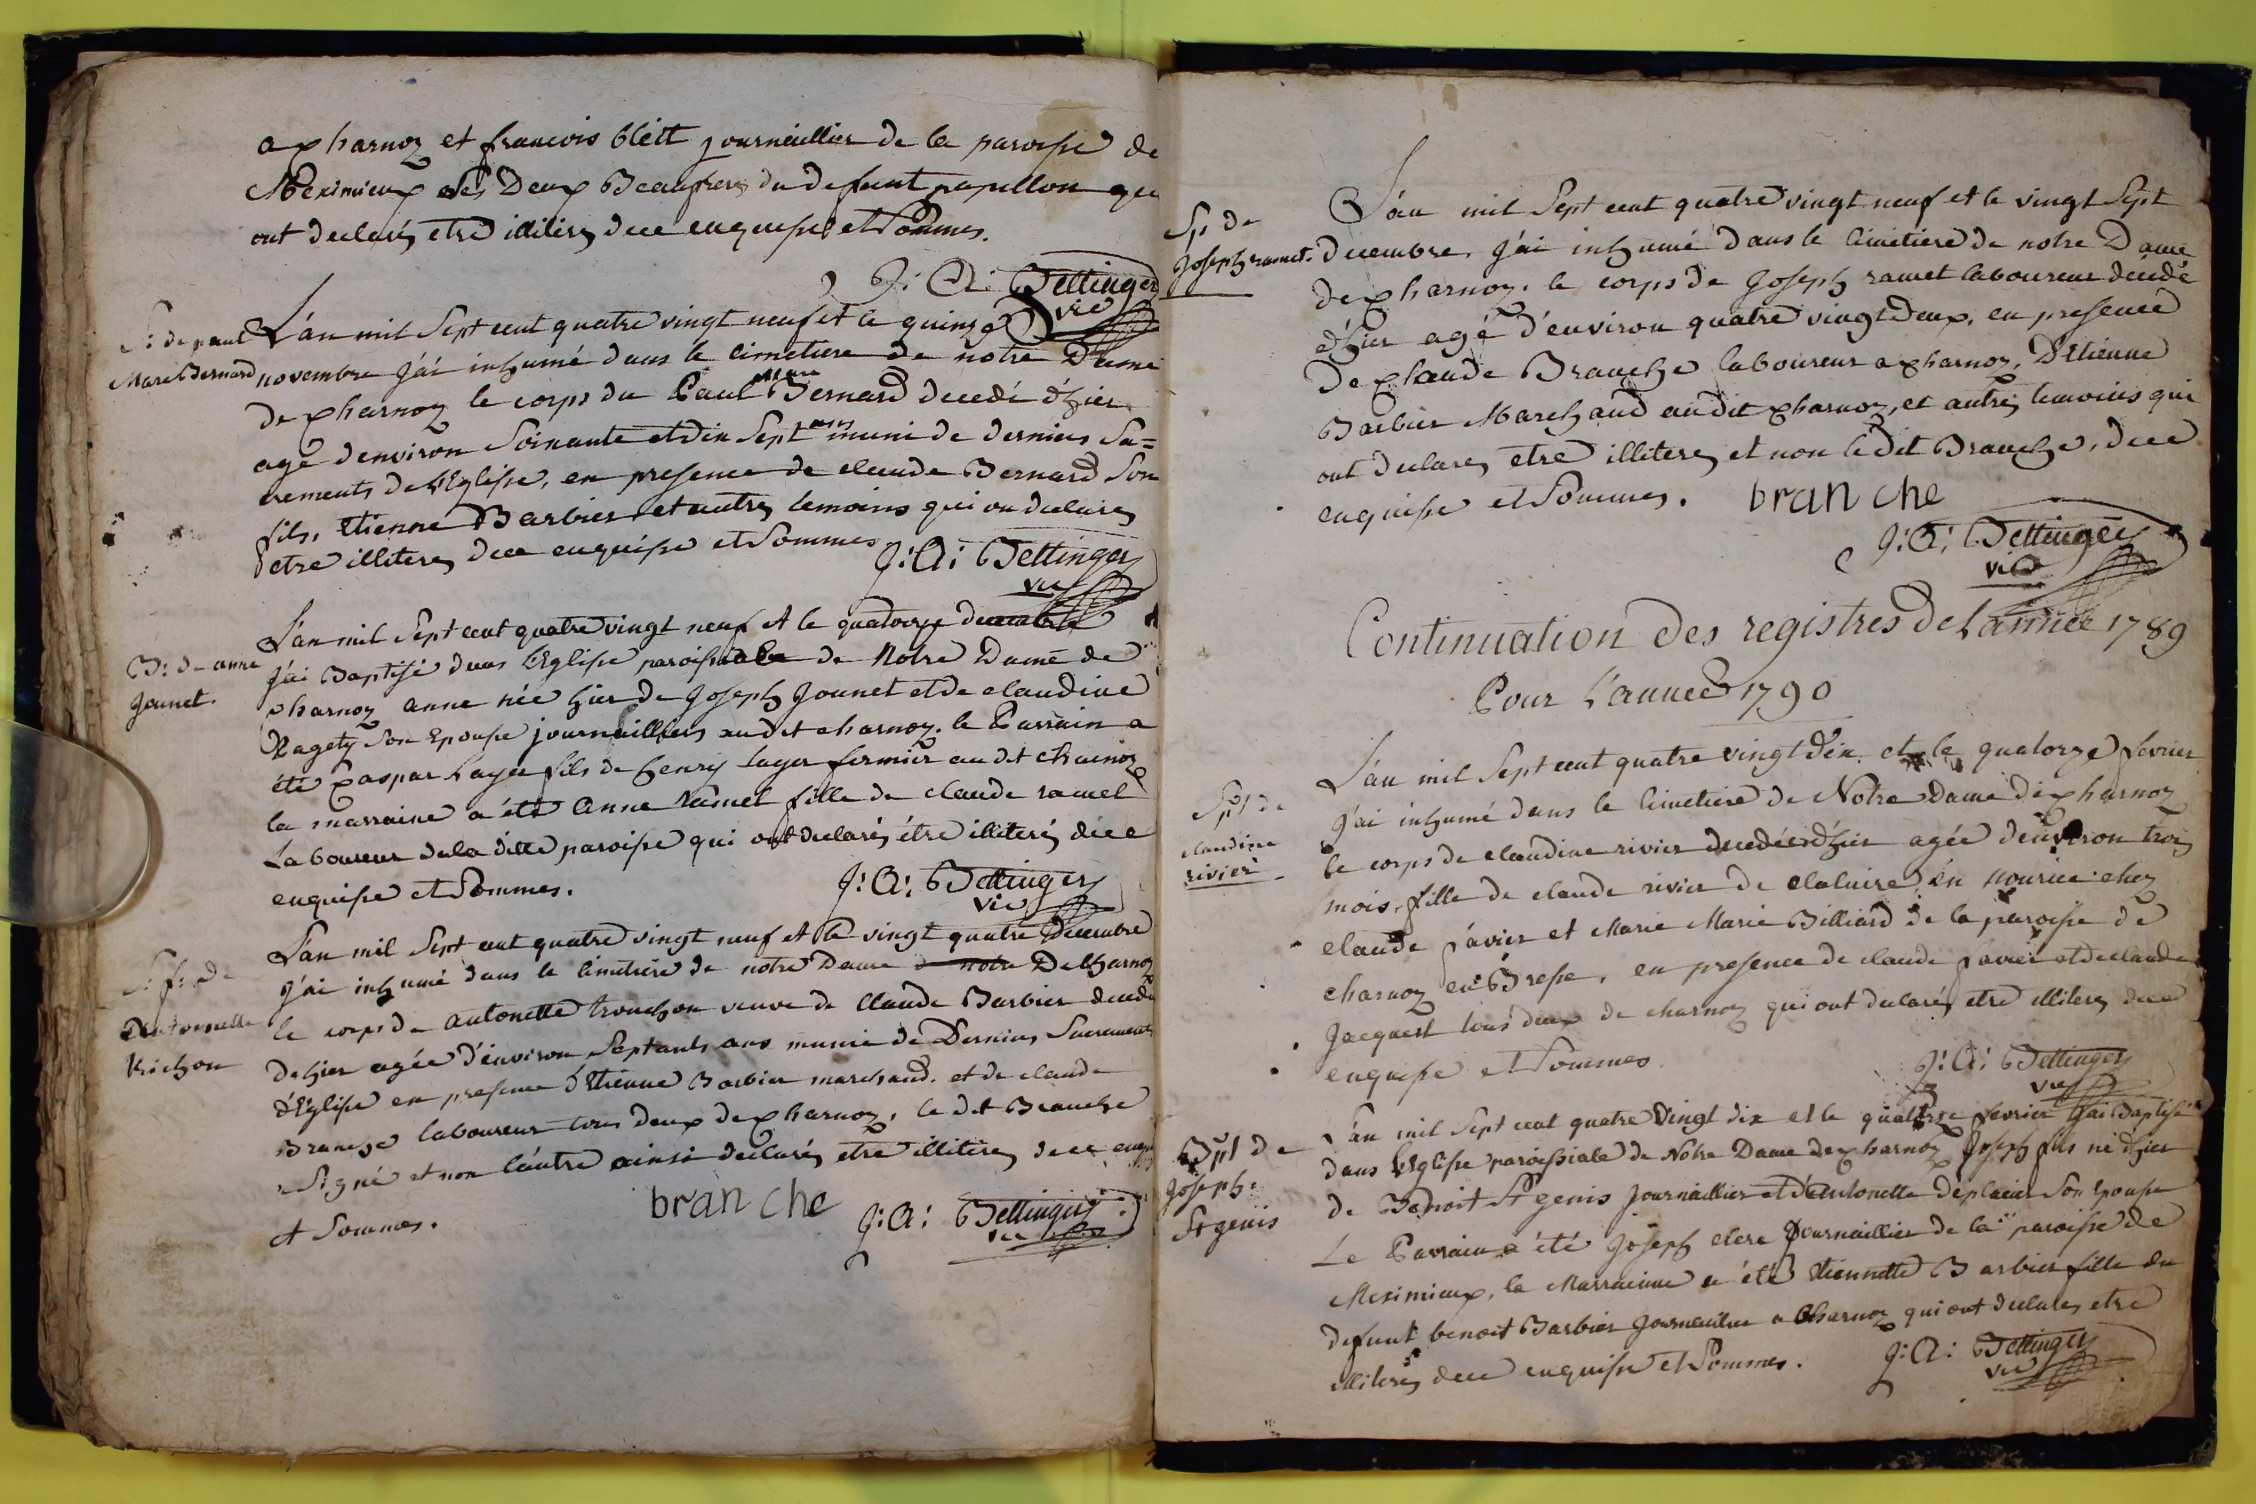 a charnoz et francois blett journaillier de la paroisse de
Meximieux ses Deux Beaufrers du defunt papillon qui
ont declarés etre illiterés dece enquise et Sommes.
J: A: Bettinger
vic
S: de paul
Marc Bernard
L'an mil Sept cent quatre vingt neuf et le quinze
novembre j'ai inhumé dans le cimetiere de notre Dame
de charnoz le corps du Paul marc Bernard decedé d'hier
agé d'environ Soixante et dix Sept ans muni de derniers Sa=
crements de l'Eglise, en presence de claude Bernard Son
fils, Etienne Barbier et autres temoins qui on declarés
etre illiterés dece enquise et Sommes
J: A: Bettinger
vic
B: de anne
Jounet.
L'an mil Sept cent quatre vingt neuf et le quatorze decembre
j'ai Baptisé dans l'Eglise paroissiale de Notre Dame de
charnoz anne née hier de Joseph Jounet et de claudine
Ragety Son Epouse journailliers audit charnoz. le Parrain a
été Gaspar Layer fils de henry layer fermier au dit charnoz
la marraine a été Anne ramel fille de claude ramel
Laboureur dela ditte paroisse qui ont declarés étre illiterés dece
enquise et Sommes.
J: A: Bettinger
vic
S: f: de
Antoinette
trichon
L'an mil Sept cent quatre vingt neuf et le vingt quatre Decembre
j'ai inhumé dans le cimetiere de notre Dame de notre De Charnoz
le corps de antonette trouchon veuve de Claude Barbier decedé
dehier agée d'environ Septants ans munie de Derniers Sacrements
d'Eglise en presence d'Etienne Barbier marchand. et de claude
Branche laboureur tous deux de charnoz, le dit Branche
a Signé et non l'autre ainsi declarés etre illiterés dece enqui
et Sommes.
bran che
J: A: Bettinger
vic
Sp: de
Joseph ramet.
L'an mil Sept cent quatre vingt neuf et le vingt Sept
decembre, j'ai inhumé dans le cimetiere de notre Dame
de charnoz. le corps de Joseph ramet laboureur decedé
d'hier agé d'environ quatre vingt deux, en presence
de claude Branche laboureur a charnoz, D'Etienne
Barbier Marchand audit charnoz, et autres temoins qui
ont declarés etre illiterés et non le dit Branche, dece
enquise et Sommes.
bran che
J: A: Bettinger
vic
Continuation des registres de L'année 1789
Pour L'année 1790
Spt de
claudine
rivier
L'an mil Sept cent quatre vingt dix et le quatorze fevrier
j'ai inhumé dans le Cimetiere de Notre Dame de charnoz
le corps de claudine rivier decedée d'hier agée d'environ trois
mois, fille de claude rivier de claluire, en nourice chez
claude favier et Marie Marie Billiard de la paroisse de
charnoz en Bresse, en presence de claude favier et declaude
Jacquest tous deux de charnoz qui ont declarés etre illiterés dece
enquise et Sommes
J: A: Bettinger
vic
Bpt de
Joseph
St genis
L'an mil Sept cent quatre Vingt dix et le quatorze fevrier j'ai Baptisé
dans l'Eglise paroissiale de Notre Dame de charnoz Joseph fils né d'hier
de Benoit St genis Journaillier et d'Antonette deplacier Son Epouse
Le Parrain a été Joseph clere Journaillier de la paroisse de
Meximieux, la Marrainne a été Etiennette Barbier fille du
defunt benoit Barbier Journaillier a Charnoz qui ont declarés etre
illiterés dece enquise et Sommes.
J: A: Bettinger
vic